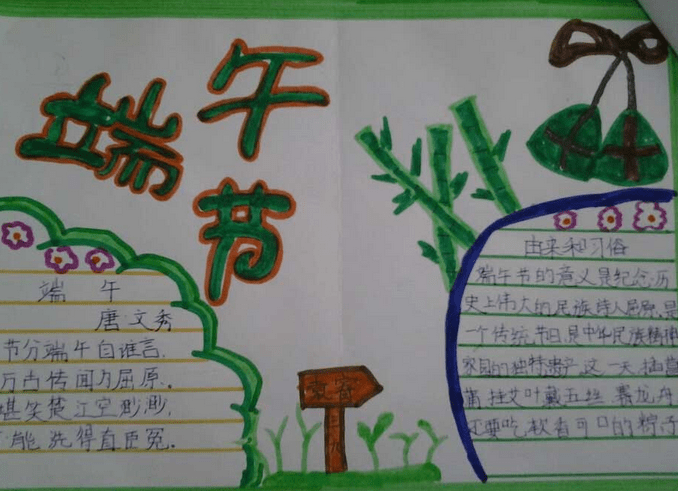 端午节
端 午
唐 文秀
节分端午自谁言,
万古传闻为屈原。
堪笑楚江空渺渺,
能洗得直臣冤。
由来和习俗
端午节的意义是纪念历
史上伟大的民族诗人屈原.是
一个传统节日.是中华民族精神
家园的独特遗产.这一天.插菖
蒲.挂艾叶戴五丝.赛龙舟
还要吃软香可口的粽子